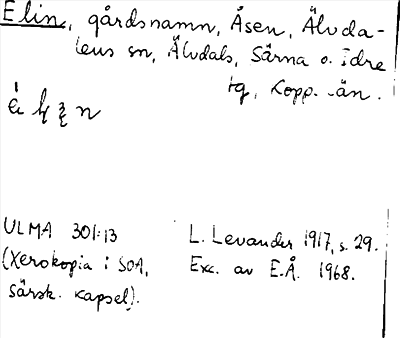 Elin, gårdsnamn, Åsen, Älvda-
lens sn, Älvdals, Särna o. Idre
tg, Kopp. län.
ULMA 301:13
(Xerokopia i SOA,
särsk. kapsel).
L. Levander 1917, s. 29.
Exc. av E.Å. 1968.